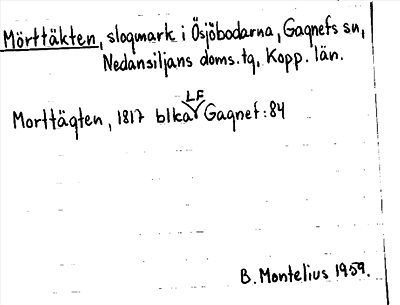 Mörttäkten, slogmark i Ösjöbodarna, Gagnefs sn,
Nedansiljans doms.tg, Kopp. län.
LF
Morttägten, 1817 blka Gagnef: 84
B. Montelius 1959.